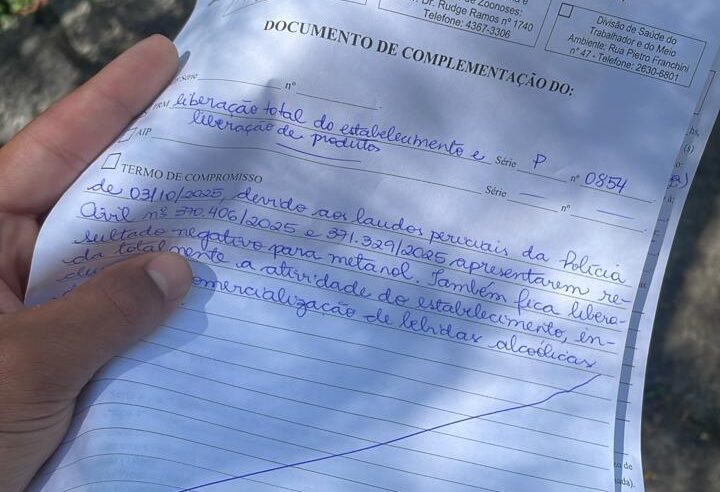 Zoonoses:
Dr. Rudge Ramos nº 1740
Telefone: 4367-3306
Divisão de Saúde do
Trabalhador e do Meio
Ambiente: Rua Pietro Franchini
nº 47 - Telefone: 2630-6801
DOCUMENTO DE COMPLEMENTAÇÃO DO:
Série nº
liberação total do estabelecimento e Série P nº 0854
liberação de produtos
AIP Série nº
TERMO DE COMPROMISSO
de 03/10/2025, devido aos laudos periciais da Polícia
Civil nºs 370.406/2025 e 371.329/2025 apresentarem re-
sultado negativo para metanol. Também fica libera-
da totalmente a atividade do estabelecimento, in-
comercialização de bebidas alcoólicas